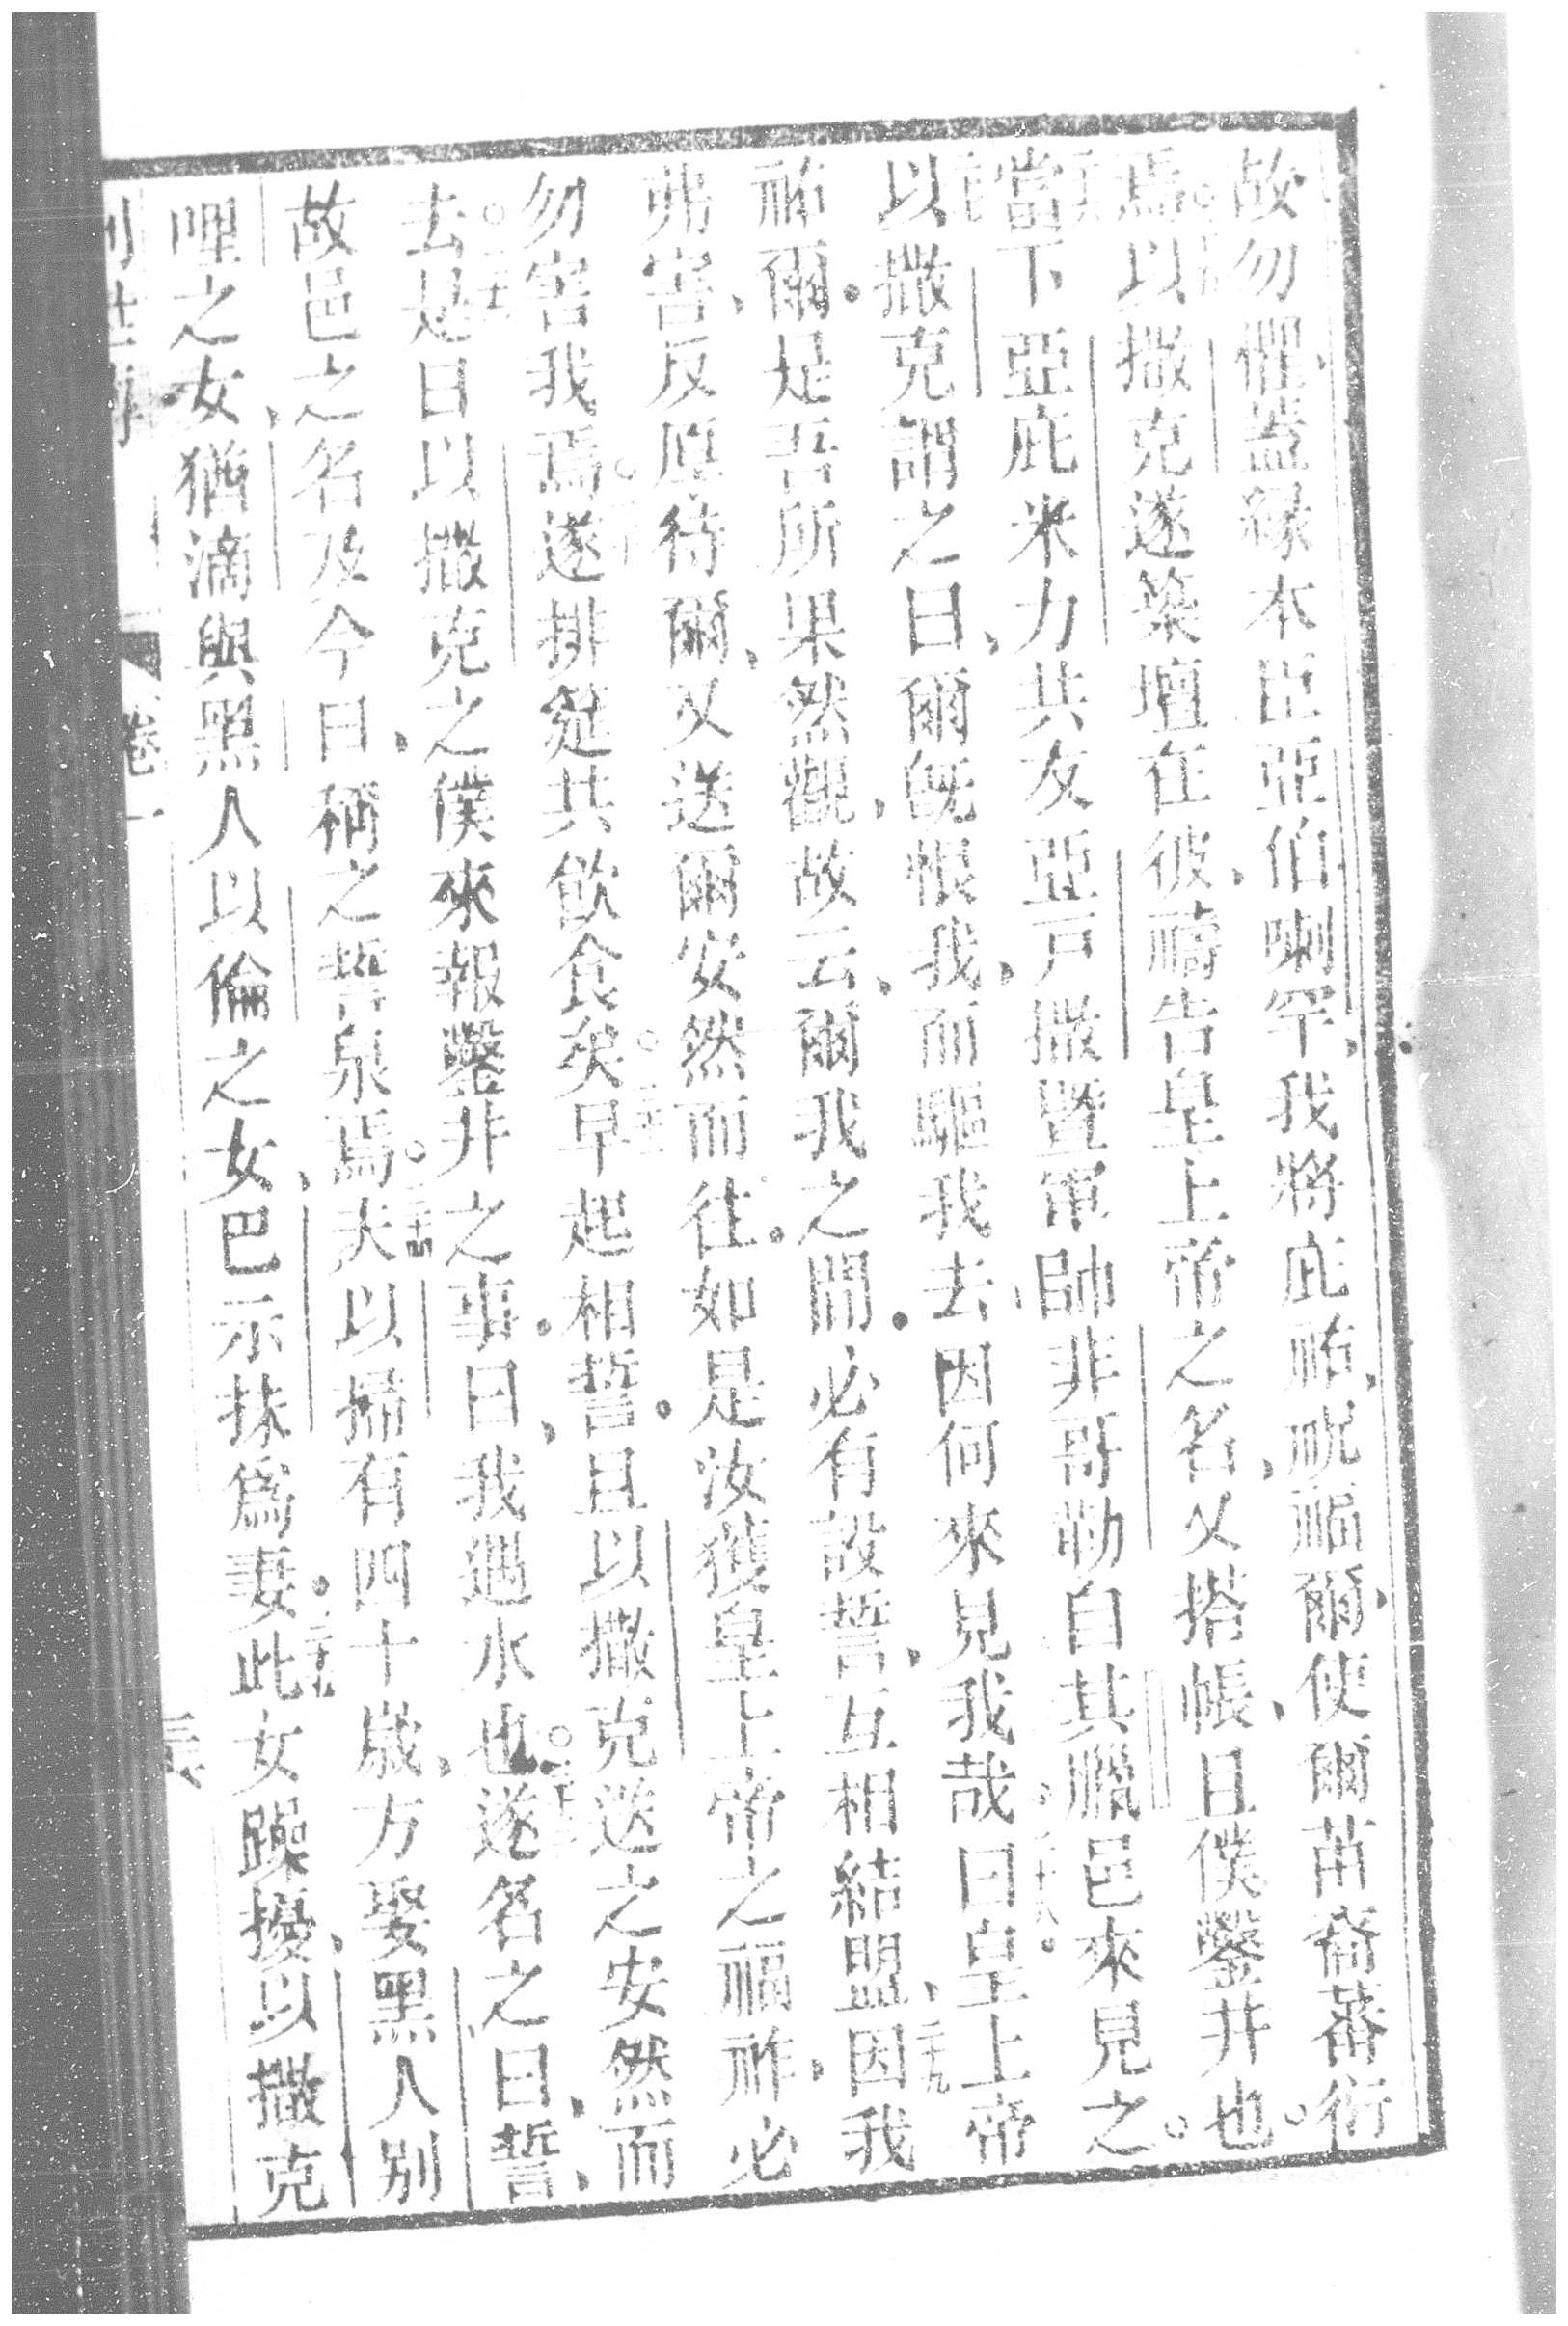 故勿懼、蓋緣本臣亞伯喇罕、我將庇祐、祝福爾、使爾苗裔蕃衍。
焉以撒克遂築壇在彼、禱告皇上帝之名、又搭帳、且僕鑿井也。
當下亞庇米力共友亞戸撒暨軍帥非哥勒自其臘邑來見之
以撒克謂之曰、爾既恨我、而驅我去、因何來見我哉。二十八。曰皇上帝
祐爾。是吾所果然觀、故云、爾我之間。必有設誓、互相結盟、二十九因我
弗害、反厚待爾、又送爾安然而往。如是汝獲皇上帝之福祚、必
勿害我焉。遂排筵共飲食矣。早起相誓。且以撒克送之安然而
去。是日以撒克之僕來報鑿井之事。曰、我遇水也。遂名之曰、誓、
故邑之名及今日、稱之誓泉焉。三十四夫以掃有四十歲、方娶黑人別
哩之女、猶滴與黑人以倫之女、巴示抹爲妻。三十五此女躁擾、以撒克
卷一